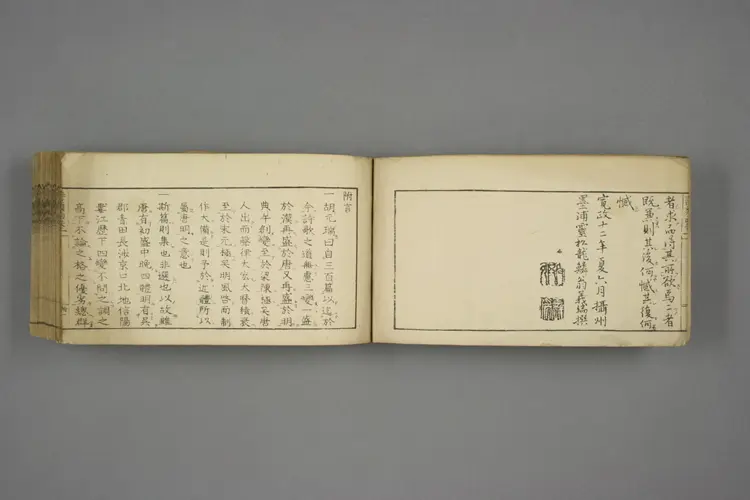 者求而得其所欲焉二者
既異則其後何憾其後何
憾
寛政十二年夏六月攝州
墨浦
附言
一胡元瑞曰自三百篇以迄於
今詩歌之道無慮三變一盛
於漢再盛於唐又再盛於明
典午創變至於梁陳極矣唐
人出而聲律大宏大曆積衰
至於宋元極矣明風啓而制
作大備是則予於近體所以
舉唐明之意也
一斯篇則集也非選也以故雖
唐有初盛中晩四體明有吳
郡青田長沙京口北地信陽
婁江歷下四變不問之調之
高下不論之格之優劣總群